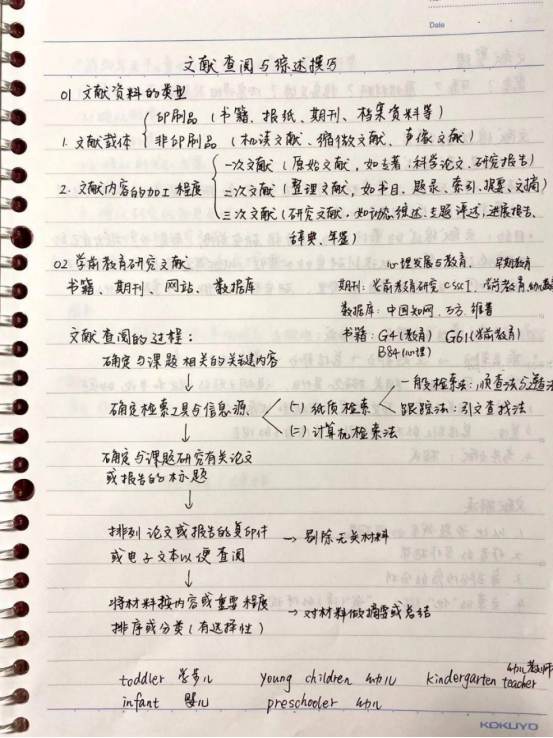 Date
文献查阅与综述撰写
01 文献资料的类型
1. 文献载体
印刷品（书籍、报纸、期刊、档案资料等）
非印刷品（机读文献、缩微文献、声像文献）
2. 文献内容的加工程度
一次文献（原始文献，如专著、科学论文、研究报告）
二次文献（整理文献，如书目、题录、索引、提要、文摘）
三次文献（研究文献，如动态、综述、专题评述，进展报告、
辞典、年鉴）
02 学前教育研究文献
书籍、期刊、网站、数据库
心理发展与教育、早期教育
期刊：学前教育研究 CSSCI、学前教育、
数据库：中国知网、万方、维普
书籍：G4(教育) G61(学前教育)
B84(心理)
文献查阅的过程：
确定与课题相关的关键内容
↓
确定检索工具与信息源
(一) 纸质检索
一般检索法：顺查法与逆查法
跟踪法：引文查找法
(二) 计算机检索法
↓
确定与课题研究有关论文
或报告的标题
↓
排列论文或报告的复印件
或电子文本以便查阅
→ 剔除无关材料
↓
将材料按内容或重要程度
排序或分类（有选择性）
→ 对材料做摘要或总结
toddler 学步儿 young children 幼儿 kindergarten teacher 幼儿教师
infant 婴儿 preschooler 幼儿
KOKUYO